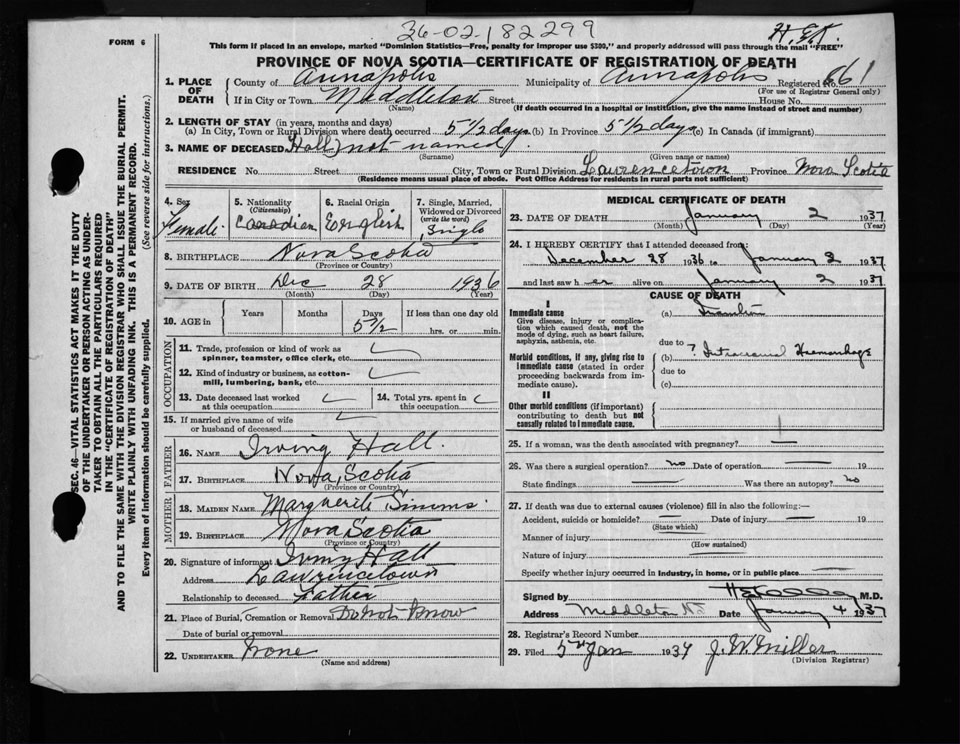 36-02182299
H.E.K.
FORM 6
This form if placed in an envelope, marked "Dominion Statistics—Free, penalty for improper use $300," and properly addressed will pass through the mail "FREE"
PROVINCE OF NOVA SCOTIA—CERTIFICATE OF REGISTRATION OF DEATH
1. PLACE OF DEATH County of Annapolis Municipality of Annapolis Registered No. 661
(For use of Registrar General only)
If in City or Town Middleton Street House No.
(Name) (If death occurred in a hospital or institution, give the name instead of street and number)
2. LENGTH OF STAY (in years, months and days)
(a) In City, Town or Rural Division where death occurred 5 1/2 days (b) In Province 5 1/2 days (c) In Canada (if immigrant)
3. NAME OF DECEASED Hall, not named
(Surname) (Given name or names)
RESIDENCE No. Street City, Town or Rural Division Lawrencetown Province Nova Scotia
(Residence means usual place of abode. Post Office Address for residents in rural parts not sufficient)
4. Sex Female
5. Nationality (Citizenship) Canadian
6. Racial Origin English
7. Single, Married, Widowed or Divorced (write the word) Single
8. BIRTHPLACE Nova Scotia
(Province or Country)
9. DATE OF BIRTH Dec 28 1936
(Month) (Day) (Year)
10. AGE in Years Months Days 5 1/2 If less than one day old
hrs. or min.
OCCUPATION
11. Trade, profession or kind of work as spinner, teamster, office clerk, etc.
12. Kind of industry or business, as cotton-mill, lumbering, bank, etc.
13. Date deceased last worked at this occupation
14. Total yrs. spent in this occupation
15. If married give name of wife or husband of deceased
FATHER
16. NAME Irving Hall.
17. BIRTHPLACE Nova Scotia
(Province or Country)
MOTHER
18. MAIDEN NAME Marguerite Simms
19. BIRTHPLACE Nova Scotia
(Province or Country)
20. Signature of informant Irving Hall
Address Lawrencetown
Relationship to deceased Father
21. Place of Burial, Cremation or Removal Do not know
Date of burial or removal
22. UNDERTAKER None
(Name and address)
MEDICAL CERTIFICATE OF DEATH
23. DATE OF DEATH January 2 1937
(Month) (Day) (Year)
24. I HEREBY CERTIFY that I attended deceased from:
December 28 1936 to January 2 1937
and last saw her alive on January 2 1937
CAUSE OF DEATH
I
Immediate cause
Give disease, injury or complication which caused death, not the mode of dying, such as heart failure, asphyxia, asthenia, etc.
(a)
due to
Morbid conditions, if any, giving rise to immediate cause (stated in order proceeding backwards from immediate cause).
(b) ? Intracranial Haemorrhage
due to
(c)
II
Other morbid conditions (if important) contributing to death but not causally related to immediate cause.
25. If a woman, was the death associated with pregnancy?
26. Was there a surgical operation? no Date of operation 19
State findings Was there an autopsy? no
27. If death was due to external causes (violence) fill in also the following:—
Accident, suicide or homicide? Date of injury 19
(State which)
Manner of injury
(How sustained)
Nature of injury
Specify whether injury occurred in industry, in home, or in public place
Signed by M.D.
Address Middleton NS Date January 4 1937
28. Registrar's Record Number
29. Filed 5th Jan 1937 J. W. Miller
(Division Registrar)
SEC. 46—VITAL STATISTICS ACT MAKES IT THE DUTY
OF THE UNDERTAKER OR PERSON ACTING AS UNDER-
TAKER TO OBTAIN ALL THE PARTICULARS REQUIRED
IN THE "CERTIFICATE OF REGISTRATION OF DEATH"
AND TO FILE THE SAME WITH THE DIVISION REGISTRAR WHO SHALL ISSUE THE BURIAL PERMIT.
WRITE PLAINLY WITH UNFADING INK. TIS IS A PERMANENT RECORD.
Every item of Information should be carefully supplied. (See reverse side for instructions.)